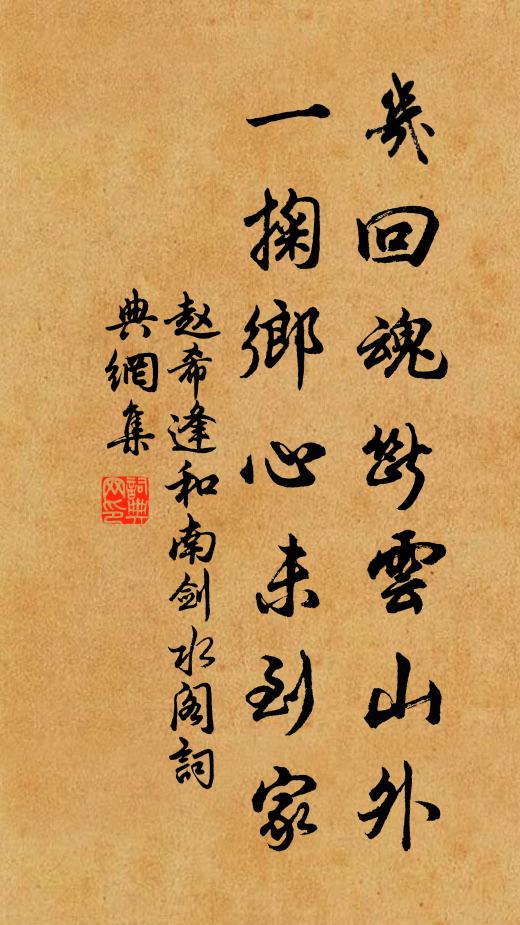 幾回魂斷雲山外
一掬鄉心未到家
赵希逢和南剑水阁詞
典網集
詞典
网印